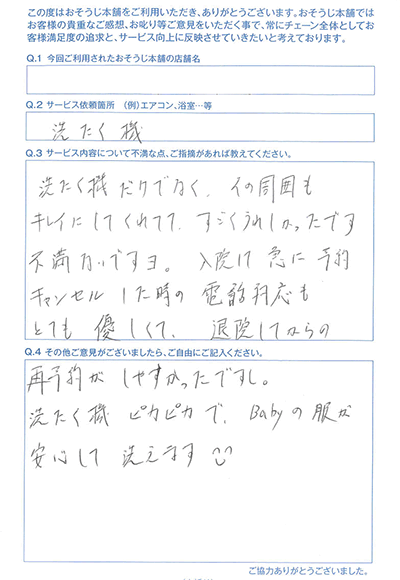 この度はおそうじ本舗をご利用いただき、ありがとうございます。おそうじ本舗では
お客様の貴重なご感想、お叱り等ご意見をいただく事で、常にチェーン全体としてお
客様満足度の追求と、サービス向上に反映させていきたいと考えております。
Q.1 今回ご利用されたおそうじ本舗の店舗名
Q.2 サービス依頼箇所 (例)エアコン、浴室…等
洗たく機
Q.3 サービス内容について不満な点、ご指摘があれば教えてください。
洗たく機だけでなく、その周囲も
キレイにしてくれてて、すごくうれしかったです
不満ないですヨ。入院け急に予約
キャンセルした時の電話対応も
とても優しくて、退院してからの
Q.4 その他ご意見がございましたら、ご自由にご記入ください。
再予約がしやすかったですし。
洗たく機ピカピカで、Babyの服が
安心して洗えます
ご協力ありがとうございました。